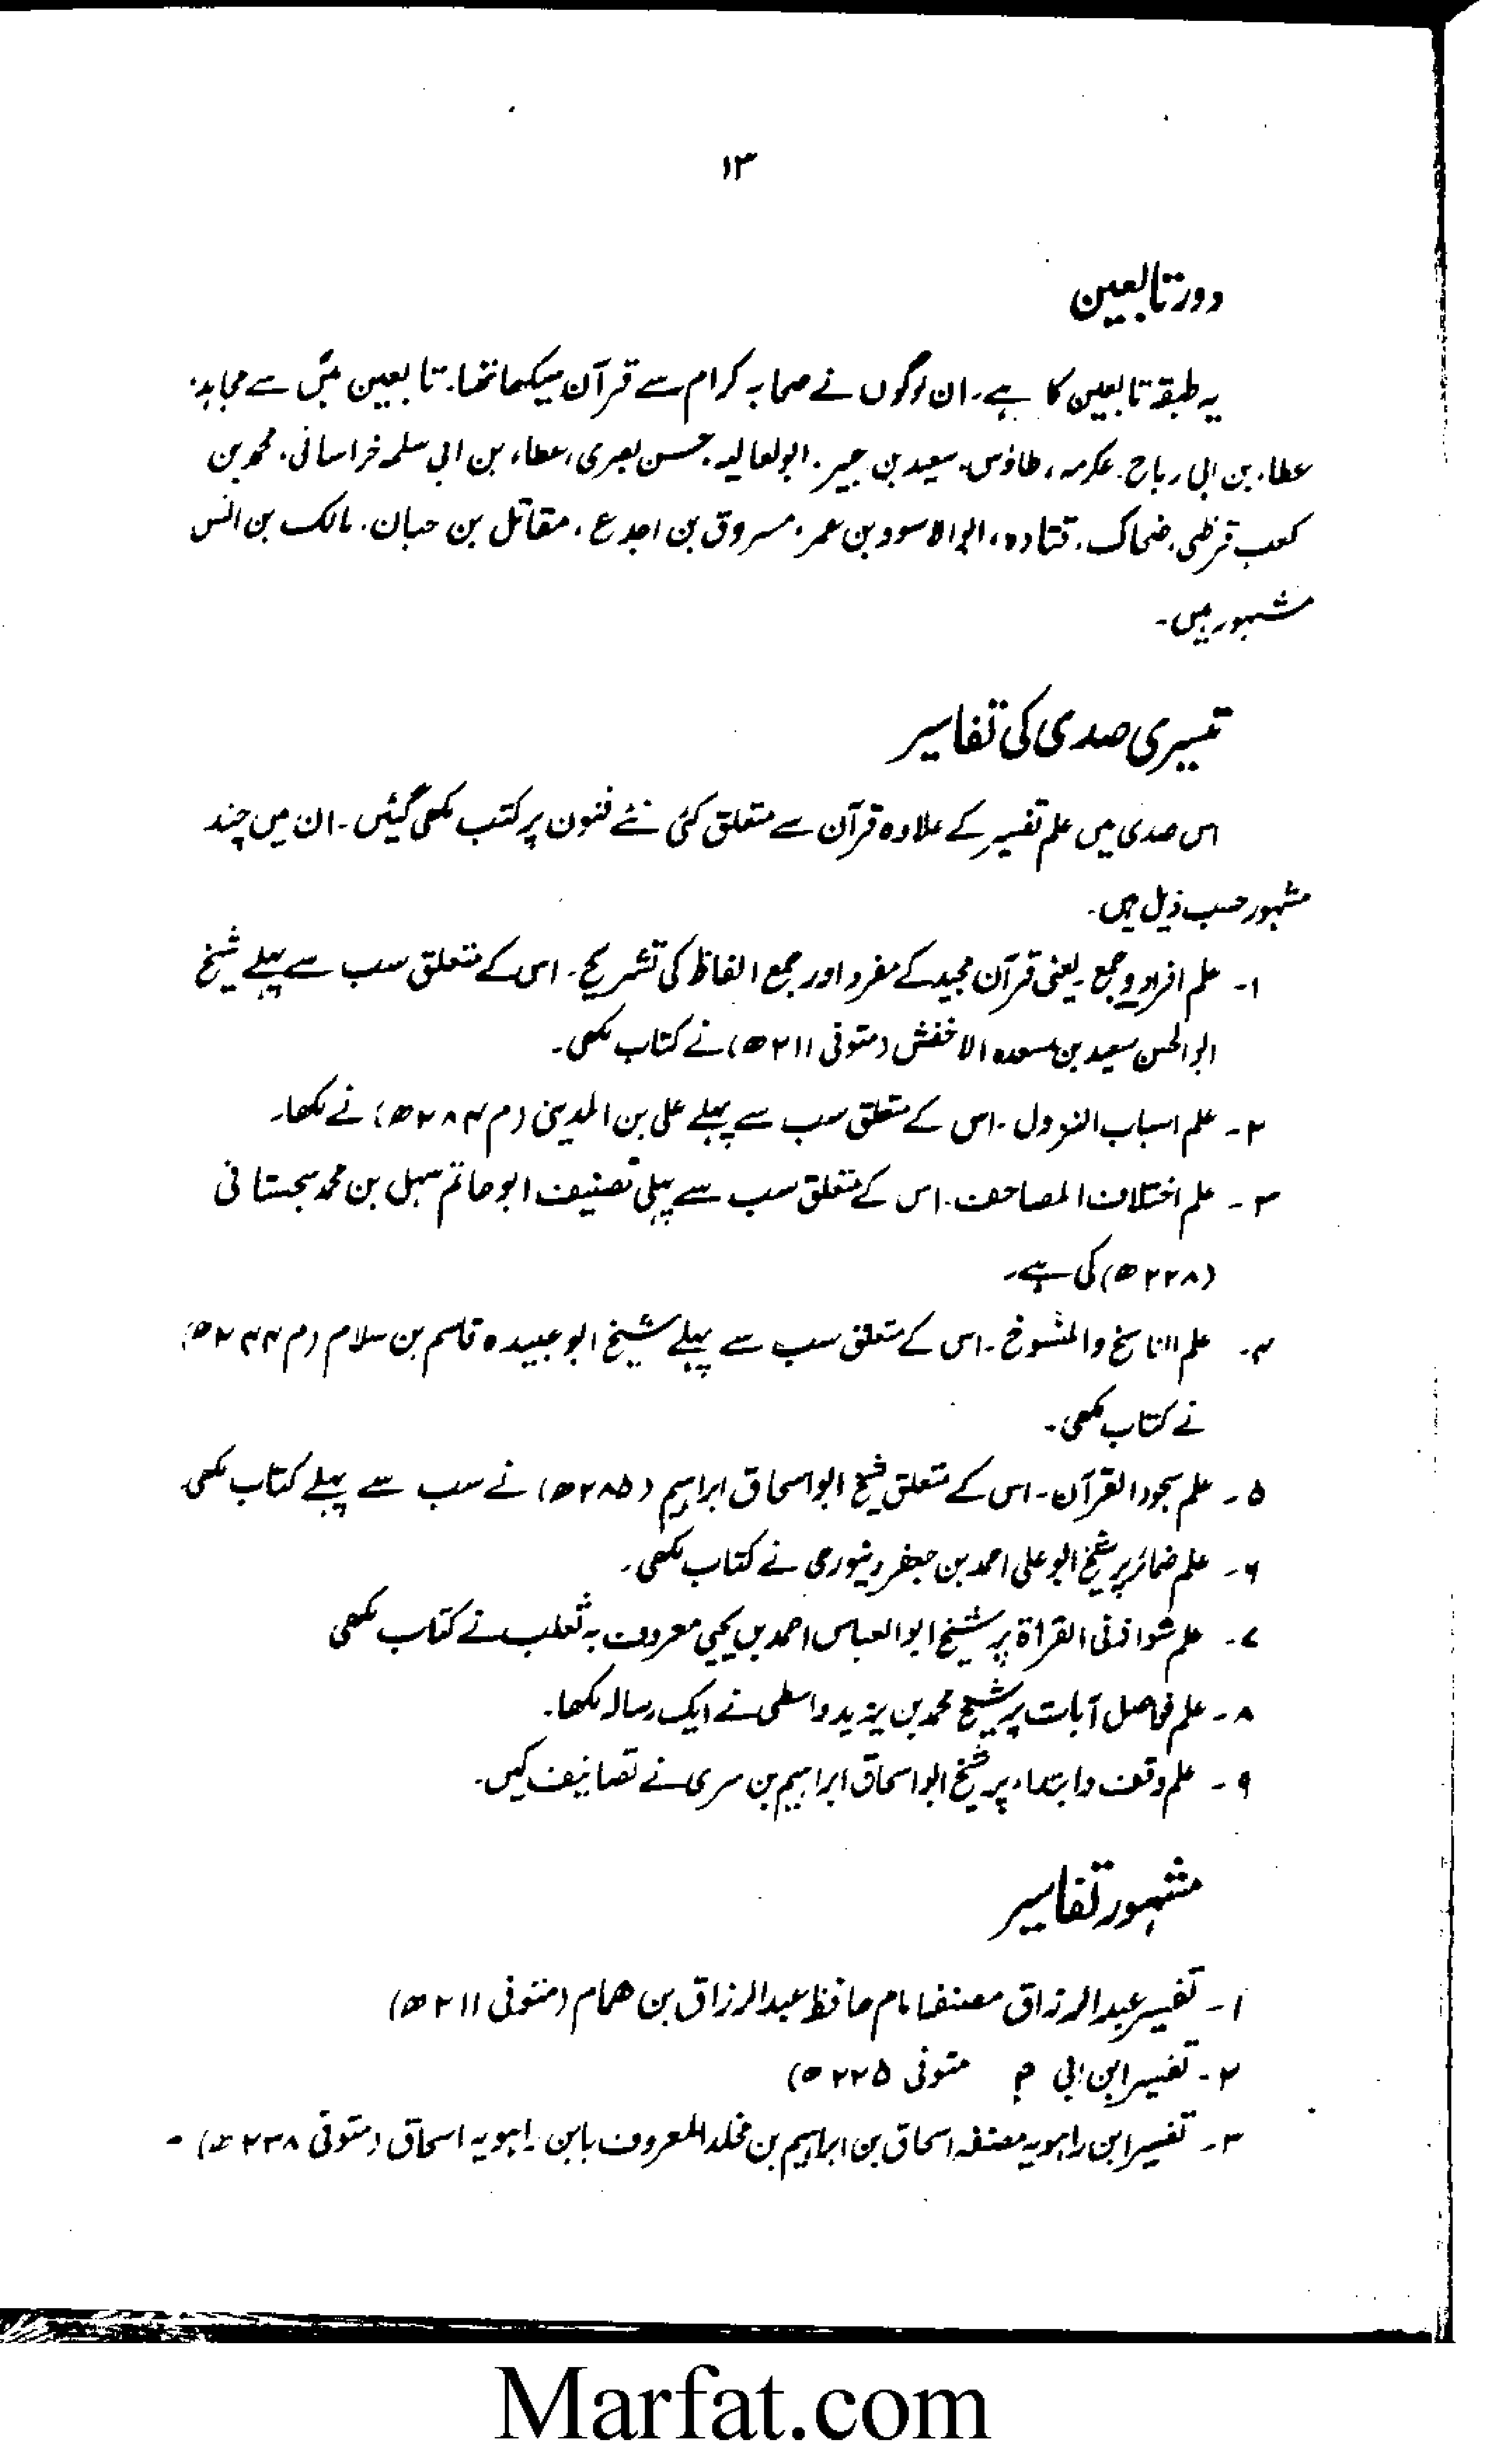 ۱۳
دور تابعین
یہ طبقہ تابعین کا ہے۔ ان لوگوں نے صحابہ کرام سے قرآن سیکھا تھا۔ تابعین میں سے مجاہد،
عطاء بن ابی رباح۔ عکرمہ، طاؤس، سعید بن جبیر۔ ابوالعالیہ۔ حسن بصری، عطاء بن ابی سلمہ خراسانی، محمد بن
کعب قرظی، ضحاک، قتادہ، ابوالاسود بن عمر، مسروق بن اجدع، مقاتل بن حبان، مالک بن انس
مشہور ہیں۔
تیسری صدی کی تفاسیر
اس صدی میں علم تفسیر کے علاوہ قرآن سے متعلق کئی نئے فنون پر کتب لکھی گئیں۔ ان میں چند
مشہور حسب ذیل ہیں۔
۱۔ علم افراد و جمع۔ یعنی قرآن مجید کے مفرد اور جمع الفاظ کی تشریح۔ اس کے متعلق سب سے پہلے شیخ
ابوالحسن سعید بن مسعدہ الاخفش (متوفی ۲۱۱ھ) نے کتاب لکھی۔
۲۔ علم اسباب النزول۔ اس کے متعلق سب سے پہلے علی بن المدینی (م ۲۸۴ھ) نے لکھا۔
۳۔ علم اختلاف المصاحف۔ اس کے متعلق سب سے پہلی تصنیف ابوحاتم سہل بن محمد سجستانی
(۲۲۸ھ) کی ہے۔
۴۔ علم الناسخ والمنسوخ۔ اس کے متعلق سب سے پہلے شیخ ابو عبیدہ قاسم بن سلام (م ۲۴۴ھ)
نے کتاب لکھی۔
۵۔ علم سجود القرآن۔ اس کے متعلق شیخ ابو اسحاق ابراہیم (۲۸۵ھ) نے سب سے پہلے کتاب لکھی
۶۔ علم ضمائر پر شیخ ابو علی احمد بن جعفر دینوری نے کتاب لکھی۔
۷۔ علم شواذ فی القراۃ پر شیخ ابوالعباس احمد بن یحیی معروف بہ ثعلب نے کتاب لکھی
۸۔ علم فواصل آیات پر شیخ محمد بن یزید واسطی نے ایک رسالہ لکھا۔
۹۔ علم وقف وابتداء پر شیخ ابو اسحاق ابراہیم بن سری نے تصانیف کیں۔
مشہور تفاسیر
۱۔ تفسیر عبدالرزاق مصنفہ امام حافظ عبدالرزاق بن ھمام (متوفی ۲۱۱ھ)
۲۔ تفسیر ابن ابی متوفی ۲۲۵ھ)
۳۔ تفسیر ابن راہویہ مصنفہ اسحاق بن ابراہیم بن مخلد المعروف بابن راہویہ اسحاق (متوفی ۲۳۸ھ)۔
Marfat.com